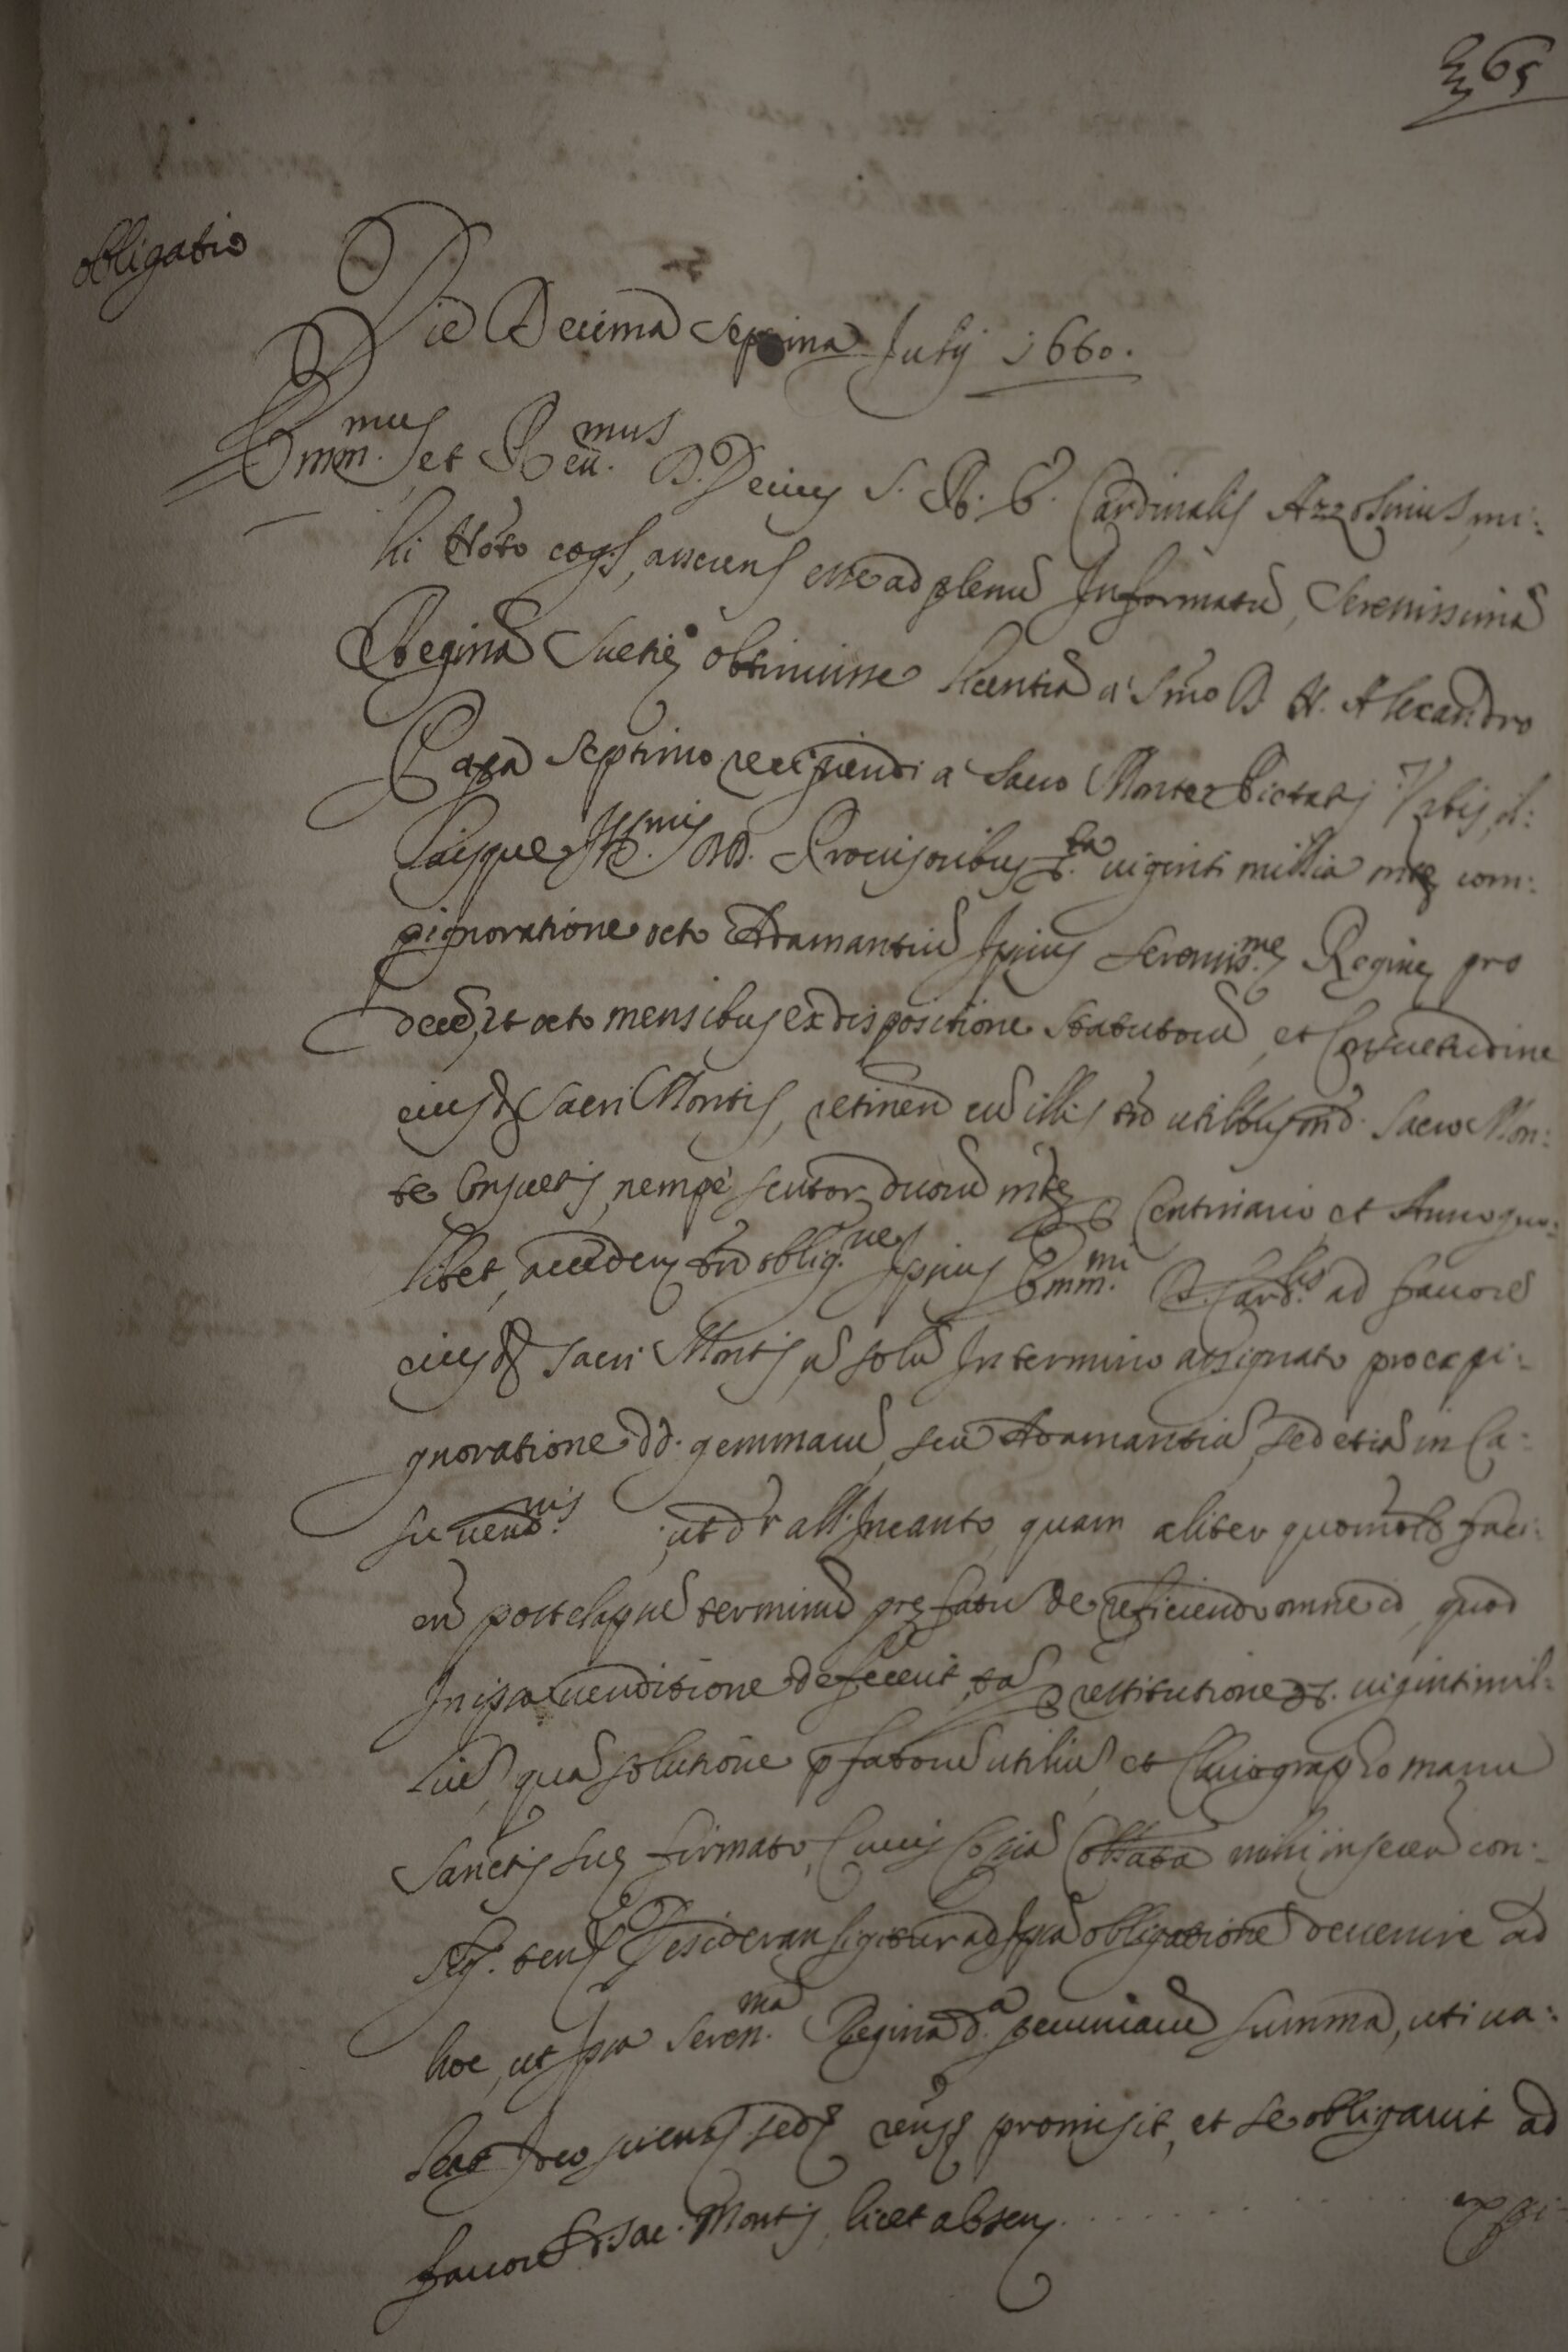 365
obligatio
Die Decima Septima Julij 1660.
Emm.mus et Reu.mus D. Decius S. R. E. Cardinalis Azzolinius, mi:
hi Noto cog.s, asserens esse ad plenu Informatu, Serenissima
Regina Suetię obtinuisse licentia a Smo D. N. Alexandro
Papa Septimo recipiendi a Sacro Monte Pietatis Vrbis, il:
liusque Ill.mis DD. Prouisoribus viginti millia mtę com:
pignoratione octo Adamantiu Ipsius Sereniss.mę Reginę pro
dece, et octo mensibus ex dispositione Statutoru, et Consuetudine
eiusd Sacri Montis, retinen cu illis tn utilibus in d. Sacro Mon:
te Consuetis, nempe scutor duoru mtę p Centinario, et Anno quo:
libet, acceden tn oblig.ne Ipsius Emm.mi D. Card.lis ad fauore
eiusd Sacri Montis, n solu In termino assignato pro expi:
gnoratione dd. gemmaru, seu Adamantiu, sed etia in Ca:
su uend.nis ut dr all'Incanto, quam aliter quomolt faci:
en post elapsu terminu pręfatu de reficiendo omne id, quod
In ipsa uenditione defecerit, ta p restitutione viginti mil:
liu, qua solutione pfatoru utiliu, et Chirographo manu
Sanctis suę firmato, Cuius Copia mihi inseren con:
sig. ten.s Desiderans igitur ad Ipsa obligatione deuenire ad
hoc, ut Ipsa Seren.ma Regina d.a pecuniaru summa, uti ua:
leat Ideo promisit, et se obligauit ad
fauore d. Sac. Montis licet absen
expi: